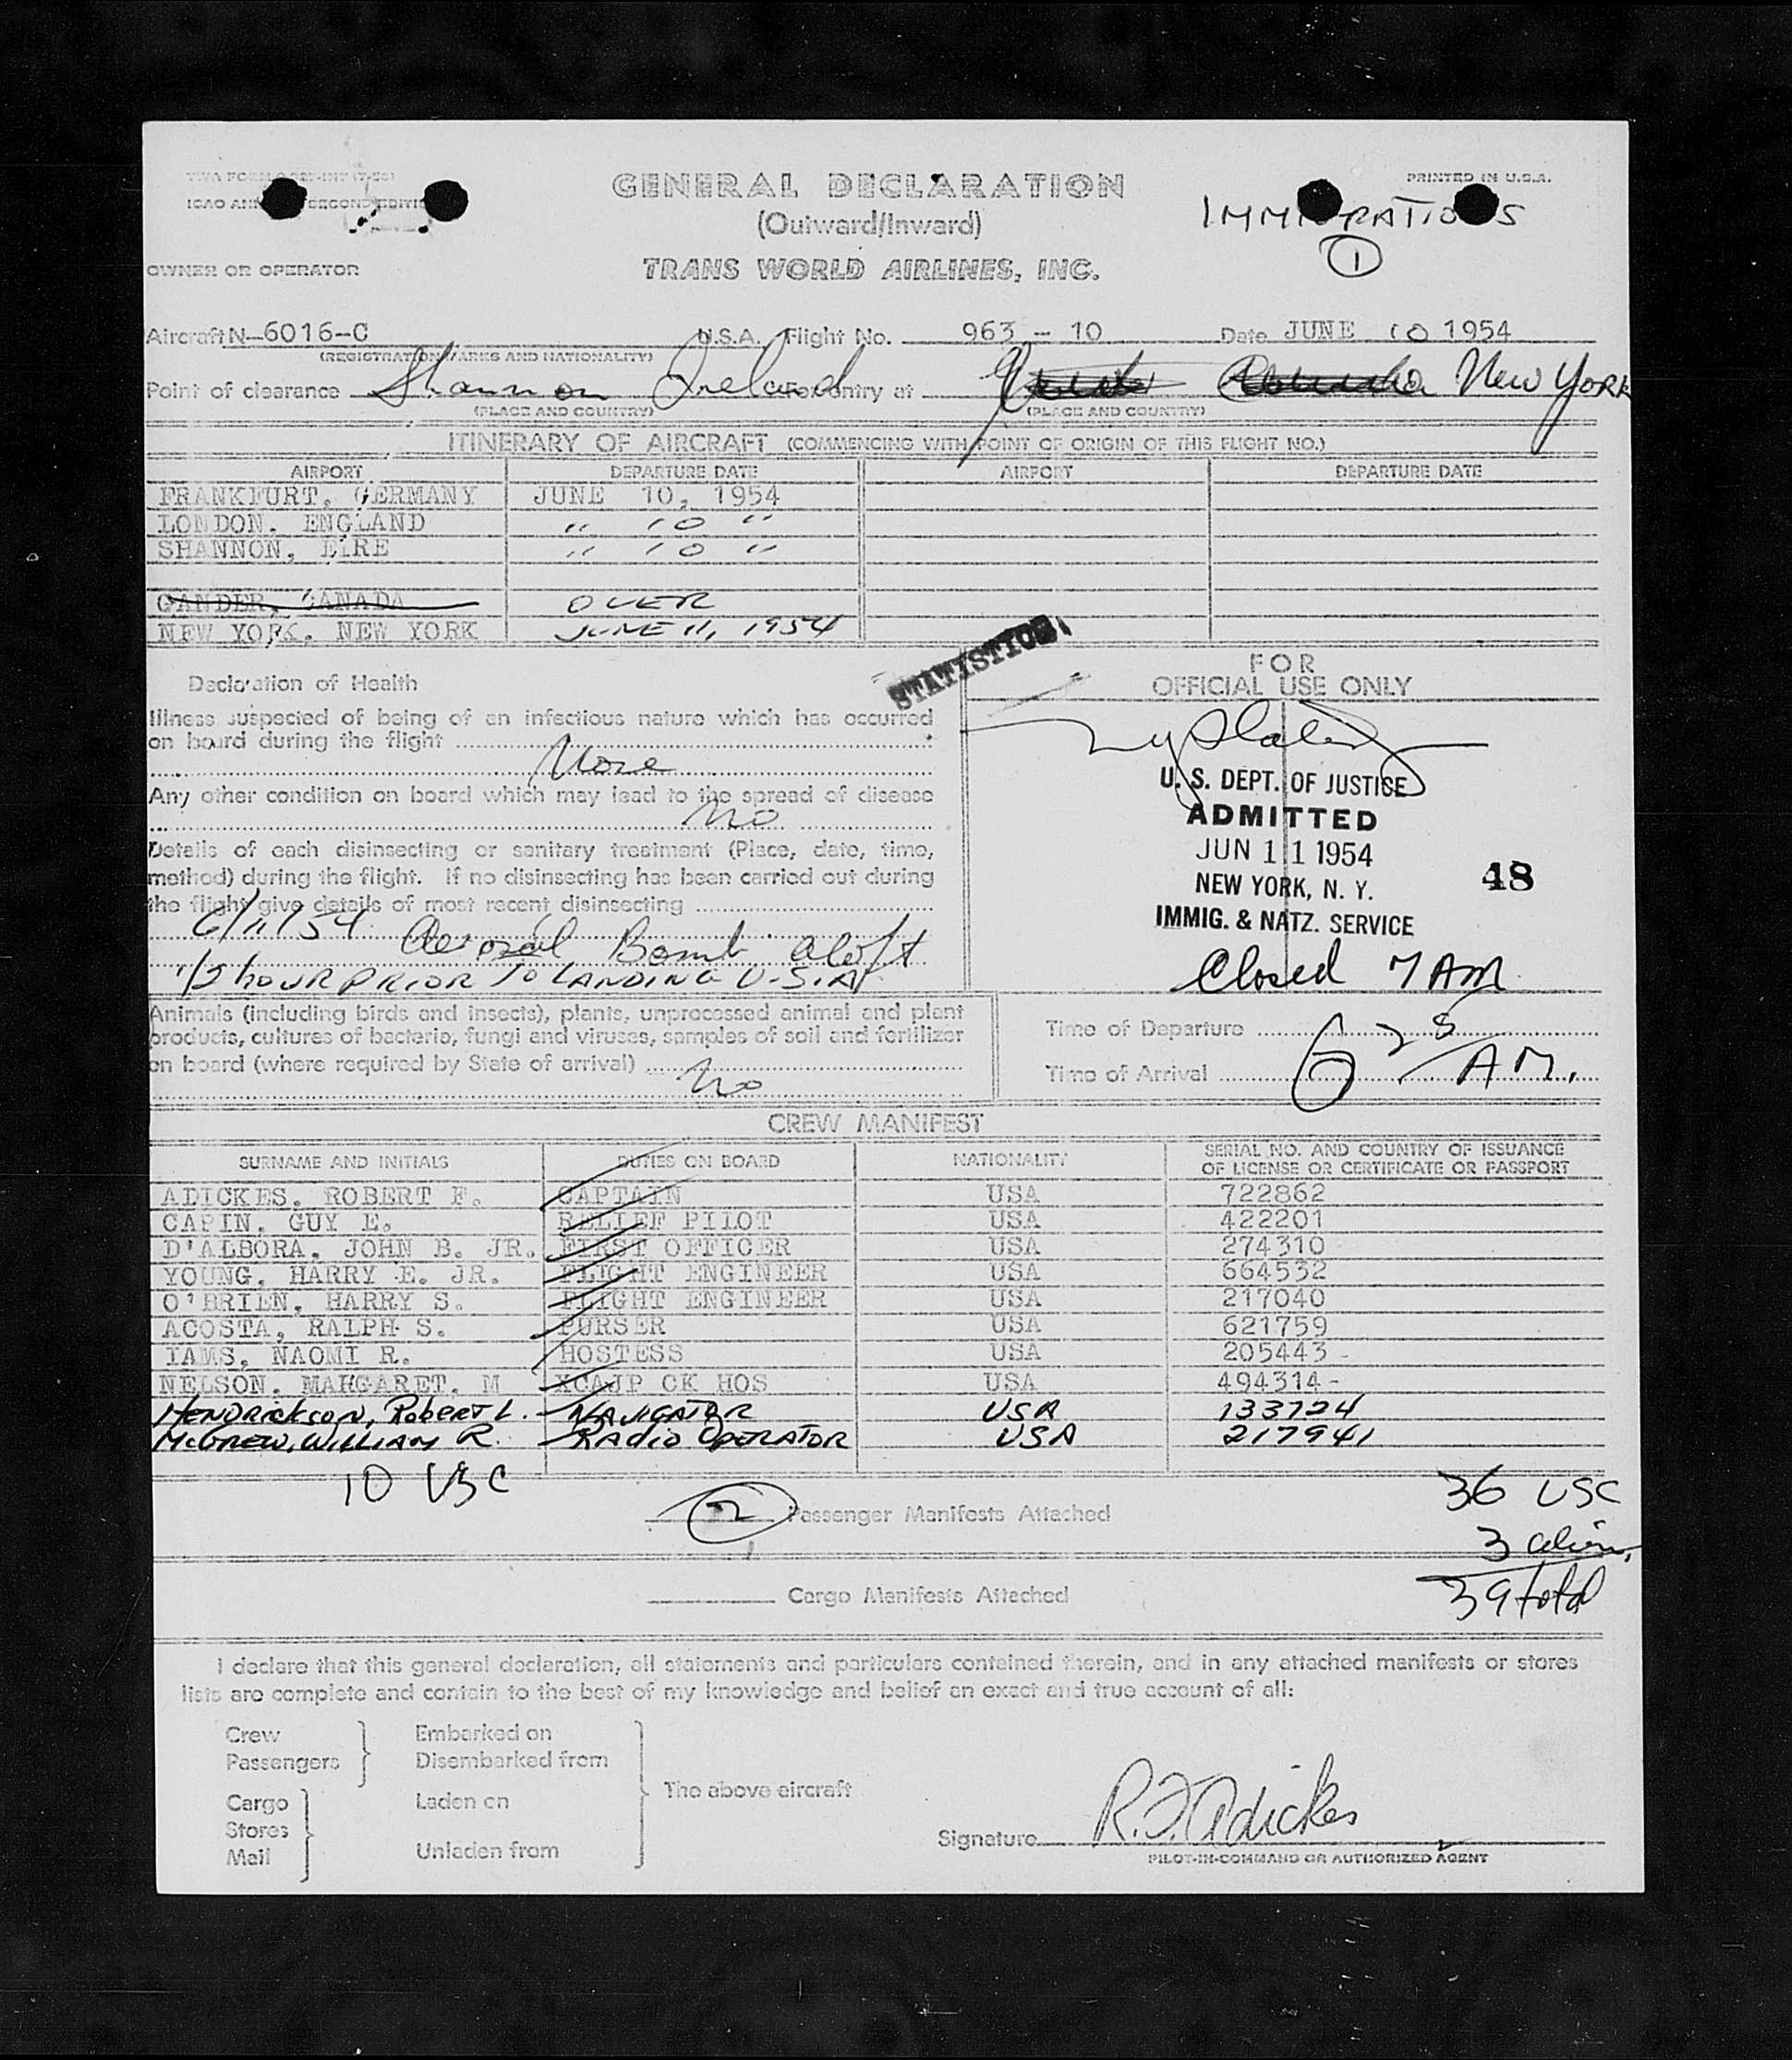 PRINTED IN U.S.A.
GENERAL DECLARATION
(Outward/Inward)
IMMIGRATIONS
1
OWNER OR OPERATOR
TRANS WORLD AIRLINES, INC.
Aircraft N-6016-C U.S.A. Flight No. 963 - 10 Date JUNE 10 1954
(REGISTRATION MARKS AND NATIONALITY)
Point of clearance Shannon Ireland For entry at New York
(PLACE AND COUNTRY) (PLACE AND COUNTRY)
ITINERARY OF AIRCRAFT (COMMENCING WITH POINT OF ORIGIN OF THIS FLIGHT NO.)
AIRPORT DEPARTURE DATE AIRPORT DEPARTURE DATE
FRANKFURT, GERMANY JUNE 10, 1954
LONDON, ENGLAND " 10 "
SHANNON, EIRE " 10 "
GANDER, CANADA OVER
NEW YORK, NEW YORK JUNE 11, 1954
STATISTICS
Declaration of Health
Illness suspected of being of an infectious nature which has occurred
on board during the flight
None
Any other condition on board which may lead to the spread of disease
No
Details of each disinsecting or sanitary treatment (Place, date, time,
method) during the flight. If no disinsecting has been carried out during
the flight give details of most recent disinsecting
6/11/54 Aerosol Bomb aloft
1/2 HOUR PRIOR TO LANDING U.S.A.
FOR
OFFICIAL USE ONLY
U. S. DEPT. OF JUSTICE
ADMITTED
JUN 11 1954
NEW YORK, N. Y.
IMMIG. & NATZ. SERVICE
48
Closed 7 AM
Animals (including birds and insects), plants, unprocessed animal and plant
products, cultures of bacteria, fungi and viruses, samples of soil and fertilizer
on board (where required by State of arrival)
No
Time of Departure
Time of Arrival AM.
CREW MANIFEST
SURNAME AND INITIALS DUTIES ON BOARD NATIONALITY SERIAL NO. AND COUNTRY OF ISSUANCE
OF LICENSE OR CERTIFICATE OR PASSPORT
ADICKES, ROBERT F. CAPTAIN USA 722862
CAPIN, GUY E. RELIEF PILOT USA 422201
D'ALBORA, JOHN B. JR. FIRST OFFICER USA 274310
YOUNG, HARRY E. JR. FLIGHT ENGINEER USA 664532
O'BRIEN, HARRY S. FLIGHT ENGINEER USA 217040
ACOSTA, RALPH S. PURSER USA 621759
IAMS, NAOMI R. HOSTESS USA 205443 -
NELSON, MARGARET, M XCAJP CK HOS USA 494314 -
HENDRICKSON, ROBERT L. NAVIGATOR USA 133724
McGREW, WILLIAM R. RADIO OPERATOR USA 217941
10 USC
2 Passenger Manifests Attached
36 USC
3 alien
39 total
Cargo Manifests Attached
I declare that this general declaration, all statements and particulars contained therein, and in any attached manifests or stores
lists are complete and contain to the best of my knowledge and belief an exact and true account of all:
Crew Embarked on
Passengers Disembarked from
The above aircraft
Cargo Laden on
Stores
Mail Unladen from
Signature R.F. Adickes
PILOT-IN-COMMAND OR AUTHORIZED AGENT